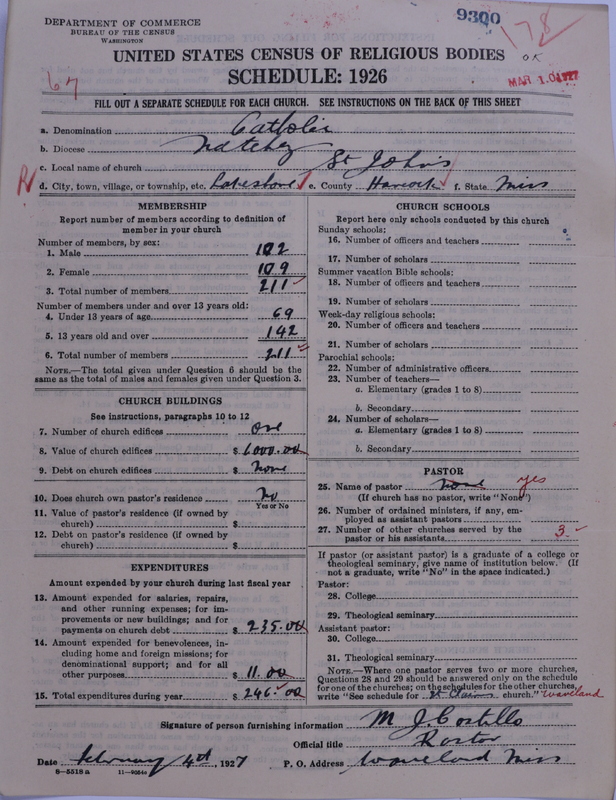 DEPARTMENT OF COMMERCE
BUREAU OF THE CENSUS
WASHINGTON
9300
178
OK
MAR 1 0 1927
67
UNITED STATES CENSUS OF RELIGIOUS BODIES
SCHEDULE: 1926
FILL OUT A SEPARATE SCHEDULE FOR EACH CHURCH. SEE INSTRUCTIONS ON THE BACK OF THIS SHEET
a. Denomination Catholic
b. Diocese Natchez
c. Local name of church St John's
R d. City, town, village, or township, etc. Lakeshore e. County Hancock f. State Miss
MEMBERSHIP
Report number of members according to definition of
member in your church
Number of members, by sex:
1. Male 102
2. Female 109
3. Total number of members 211
Number of members under and over 13 years old:
4. Under 13 years of age 69
5. 13 years old and over 142
6. Total number of members 211
NOTE.—The total given under Question 6 should be
same as the total of males and females given under Question 3.
CHURCH BUILDINGS
See instructions, paragraphs 10 to 12
7. Number of church edifices One
8. Value of church edifices $ 6000.00
9. Debt on church edifices $ None
10. Does church own pastor's residence No
Yes or No
11. Value of pastor's residence (if owned by
church) $
12. Debt on pastor's residence (if owned by
church) $
EXPENDITURES
Amount expended by your church during last fiscal year
13. Amount expended for salaries, repairs,
and other running expenses; for im-
provements or new buildings; and for
payments on church debt $ 235.00
14. Amount expended for benevolences, in-
cluding home and foreign missions; for
denominational support; and for all
other purposes $ 11.00
15. Total expenditures during year $ 246.00
CHURCH SCHOOLS
Report here only schools conducted by this church
Sunday schools:
16. Number of officers and teachers
17. Number of scholars
Summer vacation Bible schools:
18. Number of officers and teachers
19. Number of scholars
Week-day religious schools:
20. Number of officers and teachers
21. Number of scholars
Parochial schools:
22. Number of administrative officers
23. Number of teachers—
a. Elementary (grades 1 to 8)
b. Secondary
24. Number of scholars—
a. Elementary (grades 1 to 8)
b. Secondary
PASTOR
25. Name of pastor None yes
(If church has no pastor, write "None")
26. Number of ordained ministers, if any, em-
ployed as assistant pastors
27. Number of other churches served by the
pastor or his assistants 3
If pastor (or assistant pastor) is a graduate of a college or
theological seminary, give name of institution below. (If
not a graduate, write "No" in the space indicated.)
Pastor:
28. College
29. Theological seminary
Assistant pastor:
30. College
31. Theological seminary
NOTE.—Where one pastor serves two or more churches,
Questions 28 and 29 should be answered only on the schedule
for one of the churches; on the schedules for the other churches,
write "See schedule for St Clair's church." Waveland
Signature of person furnishing information M J. Costello
Official title Rector
Date February 4th, 1927 P. O. Address Waveland Miss
8—5518 a 11—9084a